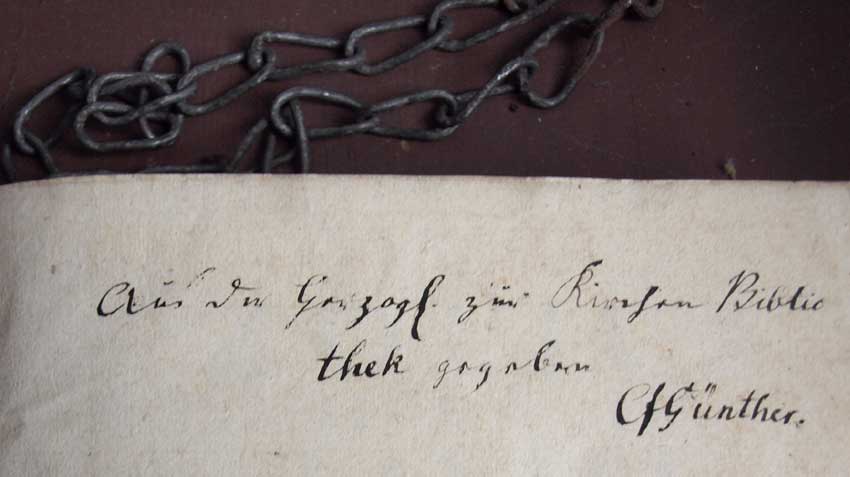 Aus der Herzogl. zur Kirchen Biblio
thek gegeben
CfGünther.